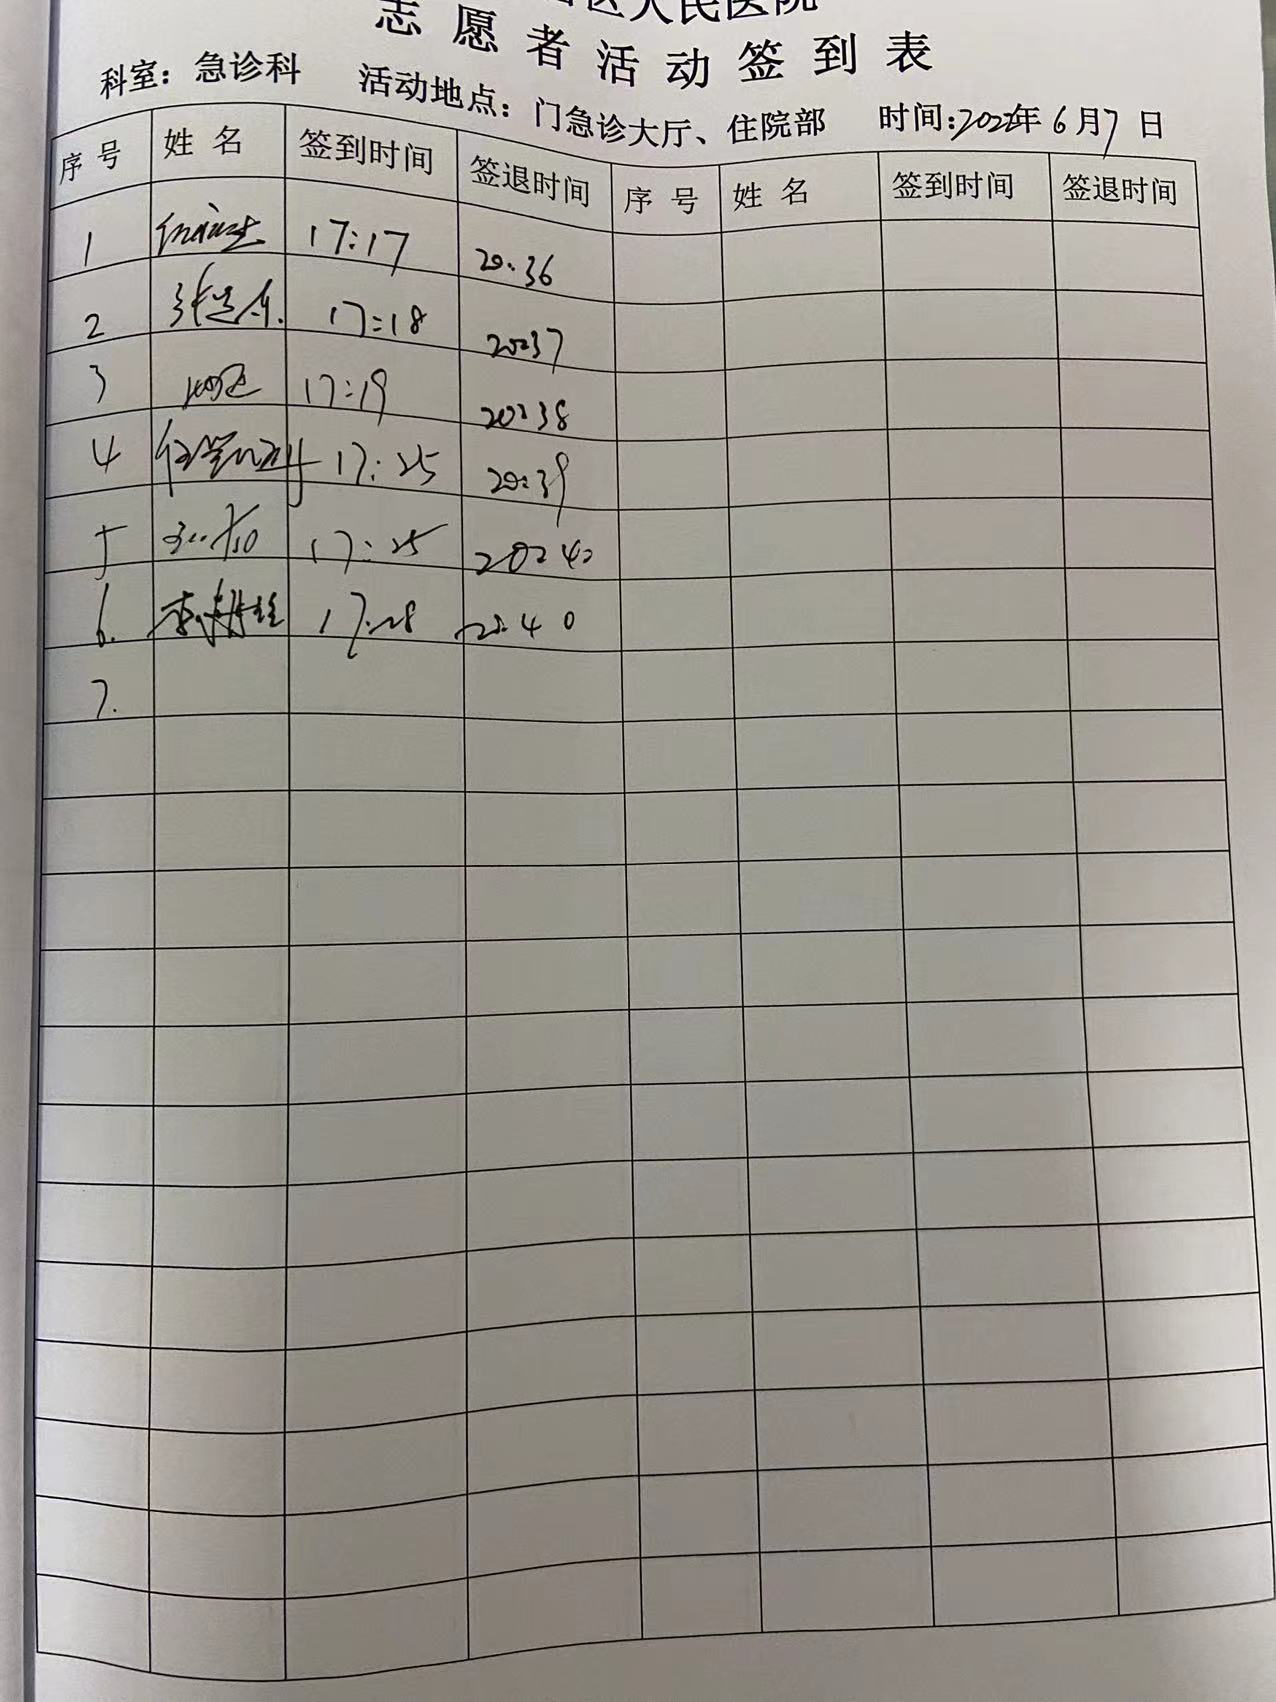 区人民医院
志愿者活动签到表
科室：急诊科 活动地点：门急诊大厅、住院部 时间：2022年6月7日
序号 姓名 签到时间 签退时间 序号 姓名 签到时间 签退时间
1 17:17 20:36
2 17:18 20:37
3 17:19 20:38
4 17:25 20:39
5 17:25 20:40
6. 17:28 20:40
7.